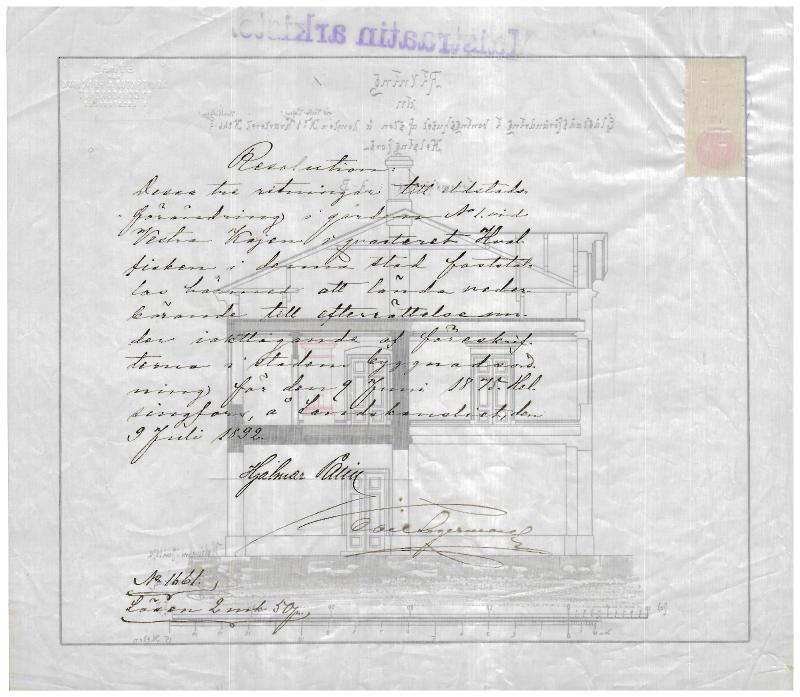 Maistraatin arkisto.
Ritning
Helsingfors
Resolution:
Dessa tre ritningar till eldstads-
förändring i gården No 1. vid
Vestra Kajen i qvarteret Hval-
fisken i denna stad faststäl-
las härmed att lända veder-
börande till efterrättelse un-
der iakttagande af föreskrif-
terna i stadens byggnadsord-
ning för den 9 Juni 1875. Hel-
singfors, å Landskansliet, den
9 Juli 1892.
Hjalmar
No 1661.
Lösen 2 mk 50 p.